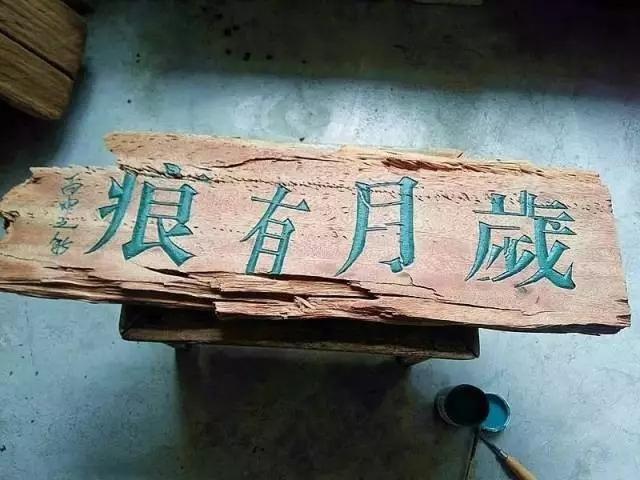 歲月有痕